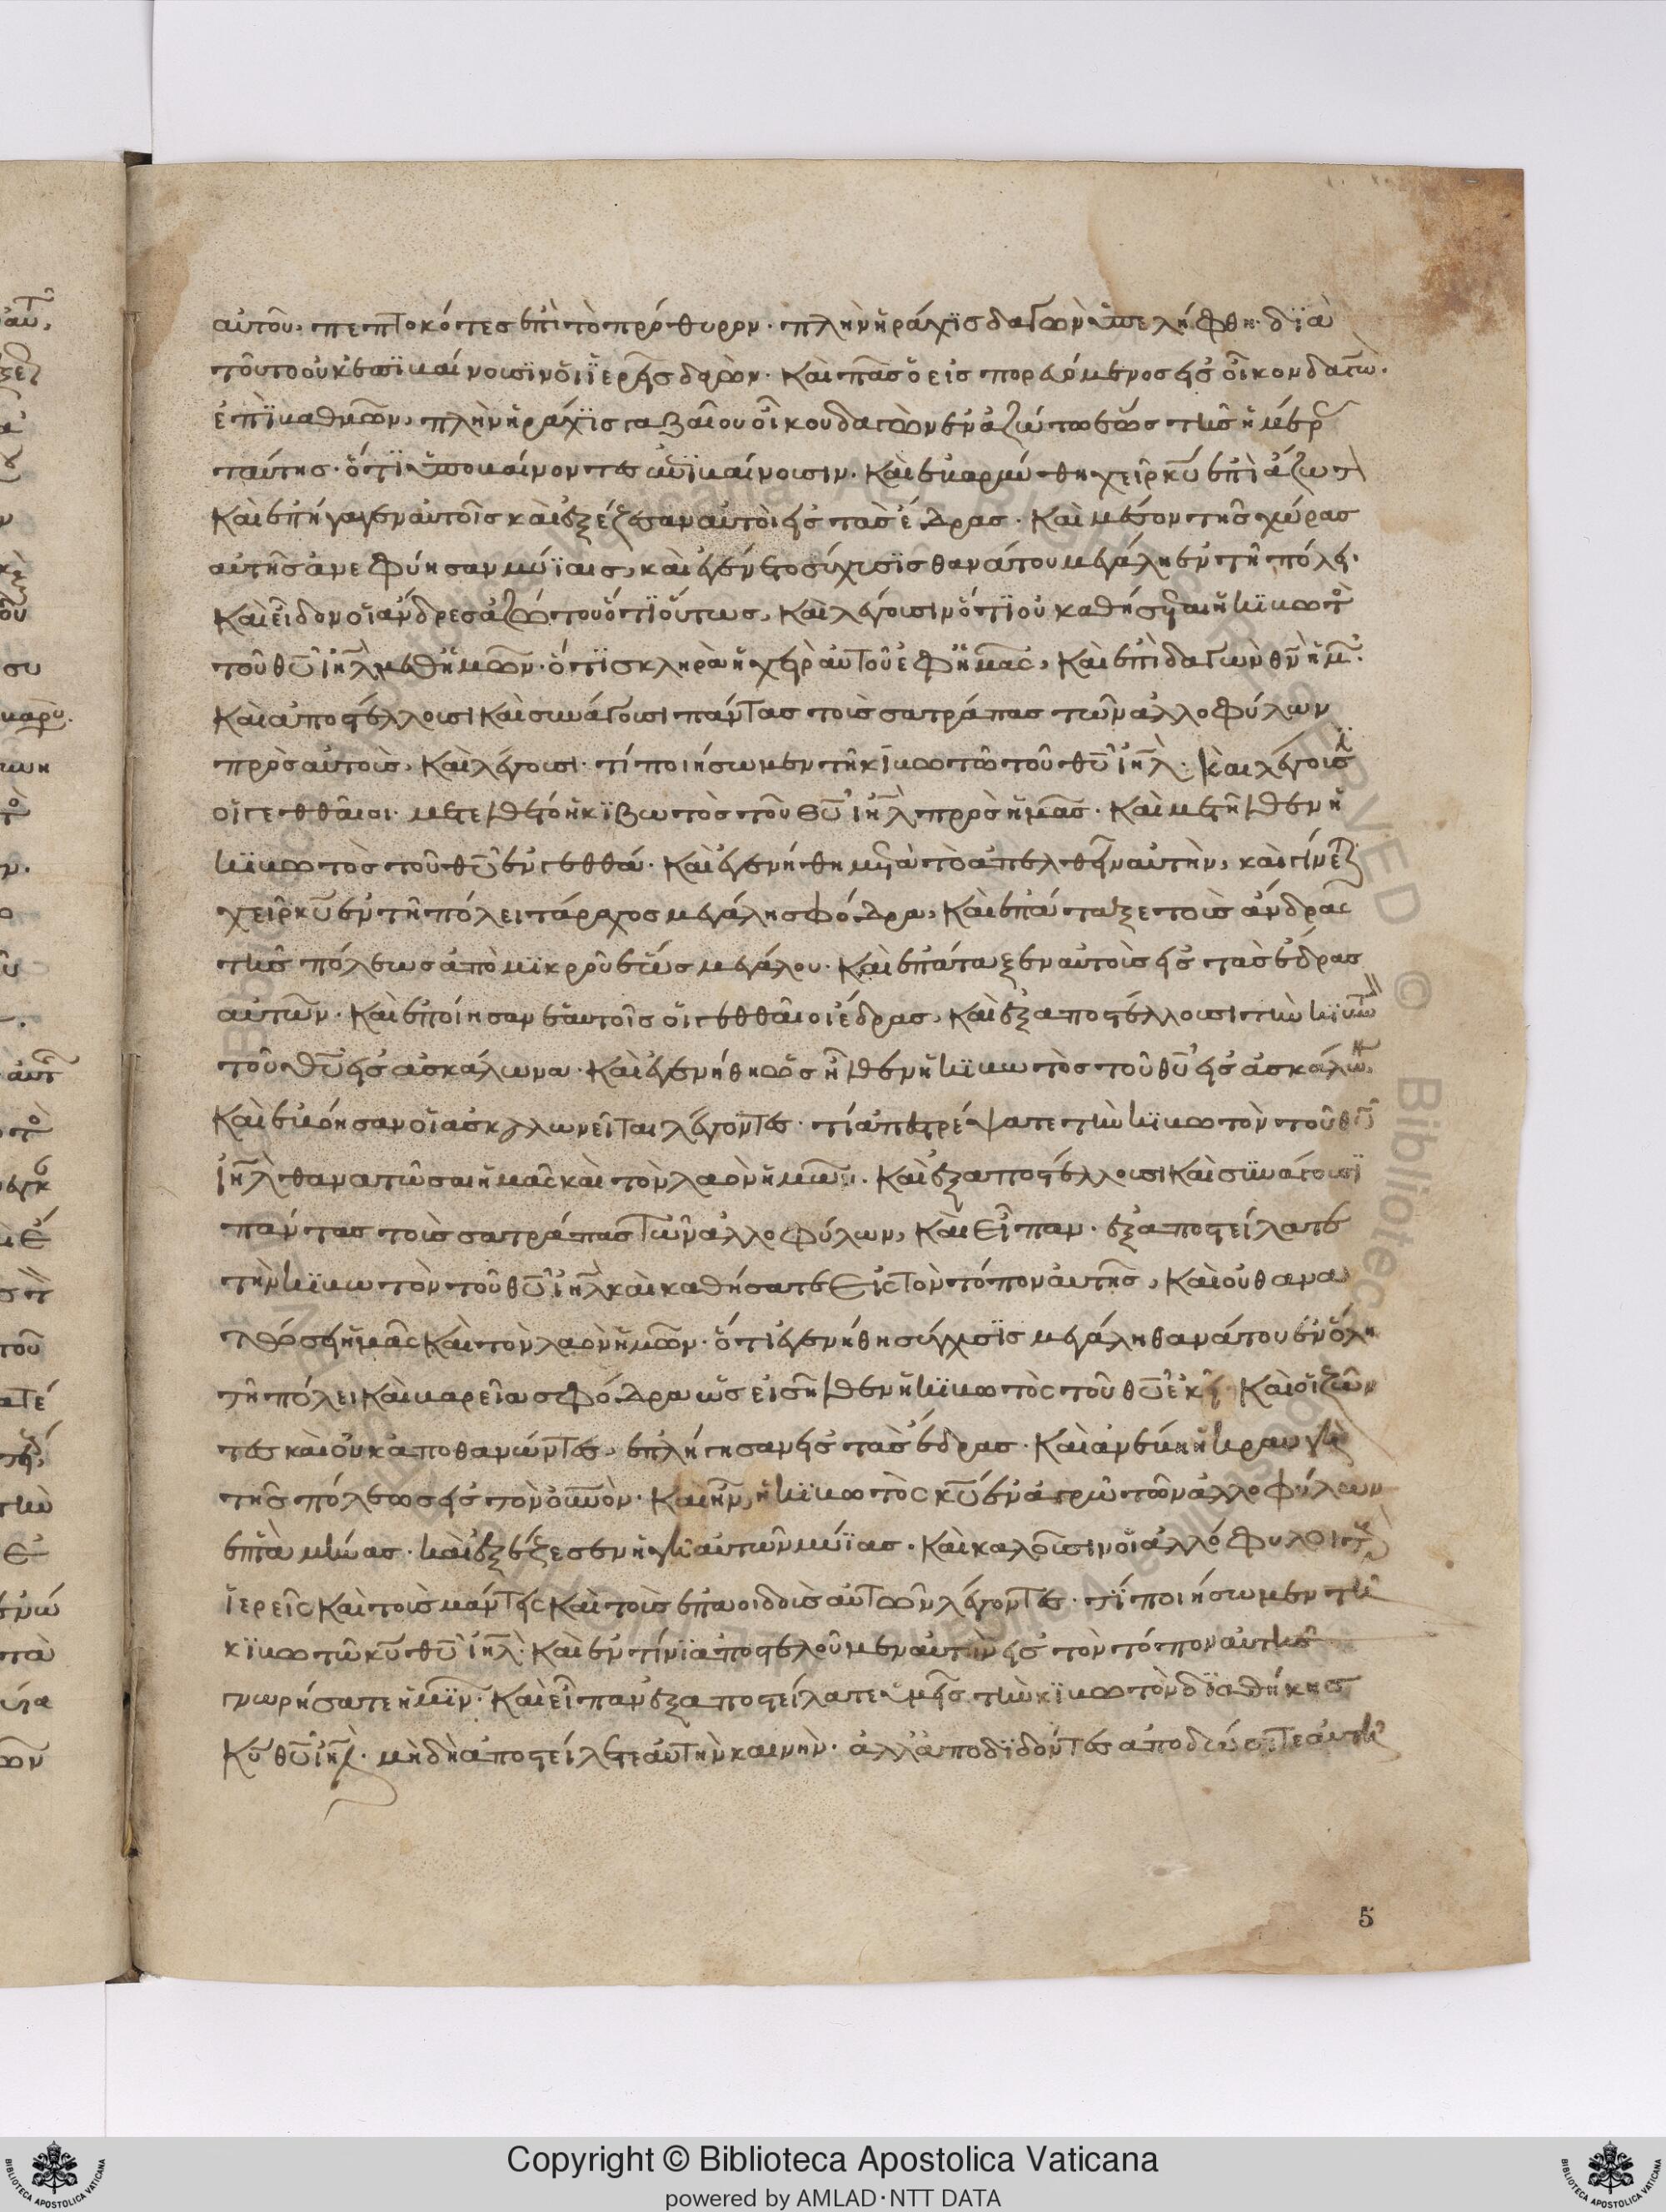 αὐτοῦ, πεπτοκότες ἐπὶ τὸ πρόθυρον· πλὴν ἡ ράχϊς δαγὼν ὑπελήφθη· δϊὰ
τοῦτο οὐκ ἐπϊβαίνουσϊν ὁι ϊἑρεῖς δαγὼν· καὶ πᾶς ὁ εἰσπορευόμενος εἰς οἶκον δαγὼ·
ἐπϊβαθμὸν, πλὴν ἡ ράχϊς γαβαίου οἴκου δαγὼν ἐν ἀζώτω ἕως τῆς ἡμέρ
ταύτης· ὅτϊ ὑποβαίνοντες ὑπϊβαίνουσιν· καὶ ἐβαρύνθη χεῖρ κυ ἐπὶ ἄζωτ
καὶ ἐπήγαγεν αὐτοῖς καὶ ἐξέζεσαν αὐτοὶ εἰς τὰς ἕδρας· καὶ μέσον τῆς χώρας
αὐτῆς ἀνεφύησαν μύϊαις, καὶ ἐγένετο σύχυσϊς θανάτου μεγάλη ἐν τῆ πόλει·
καὶ εἶδον οἱ ἄνδρες ἀζώτου ὅτϊ οὕτως, καὶ λέγουσιν ὅτϊ οὐ καθήσεται ἡ κϊβωτὸ
τοῦ θυ ιηλ μεθ ἡμῶν· ὅτϊ σκληρὰ ἡ χεὶρ αὐτοῦ ἐφ ἡμᾶς, καὶ ἐπὶ δαγὼν θν ἡμ·
καὶ ἀποστέλλουσι καὶ συνάγουσι πάντας τοὺς σατράπας τῶν ἀλλοφύλων
πρὸς αὐτοὺς, καὶ λέγουσι· τί ποιήσωμεν τῆ κϊβωτῶ τοῦ θυ ιηλ· καὶ λέγουσ
οἱ γεθθαῖοι· μετελθέτο ἡ κϊβωτὸς τοῦ θυ ιηλ πρὸς ἡμᾶς· καὶ μετῆλθεν ἡ
κϊβωτὸς τοῦ θυ ἐν γεθθά· καὶ ἐγενήθη μετὰ τὸ ἀπελθεῖν αὐτὴν, καὶ γίνετ
χεῖρ κυ ἐν τῆ πόλει τάραχος μεγάλη σφόδρα, καὶ ἐπάταξε τοὺς ἄνδρας
τῆς πόλεως ἀπὸ μϊκροῦ ἕως μεγάλου· καὶ ἐπάταξεν αὐτοὺς εἰς τὰς ἕδρας
αὐτῶν· καὶ ἐποίησαν ἑαυτοῖς οἱ γεθθαῖοι ἕδρας, καὶ ἐξαποστέλλουσι τὴν κϊβω
τοῦ θυ εἰς ἀσκάλωνα· καὶ ἐγενήθη ὡς ἦλθεν ἡ κϊβωτὸς τοῦ θυ εἰς ἀσκάλων,
καὶ ἐβόησαν οἱ ἀσκαλλωνεῖται λέγοντες· τί ἀπεστρέψατε τὴν κϊβωτὸν τοῦ θυ
ιηλ θανατῶσαι ἡμᾶς καὶ τὸν λαὸν ἡμῶν. καὶ ἐξαποστέλλουσι καὶ σϋνάγουσϊ
πάντας τοὺς σατράπας τῶν ἀλλοφύλων, καὶ εἶπαν· ἐξαποστείλατε
τὴν κϊβωτὸν τοῦ θυ ιηλ καὶ καθήσατε εἰς τὸν τόπον αὐτῆς, καὶ οὐ θανα
τώσει ἡμᾶς καὶ τὸν λαὸν ἡμῶν· ὅτι ἐγενήθη σύγχυσϊς μεγάλη θανάτου ἐν ὅλη
τῆ πόλει καὶ βαρεῖα σφόδρα ὡς εἰσῆλθεν ἡ κϊβωτὸς τοῦ θυ ἐκεῖ καὶ οἱ ζῶν
τες καὶ οὐκ ἀποθανώντες, ἐπλήγησαν εἰς τὰς ἕδρας· καὶ ἀνέβη ἡ κραυγὴ
τῆς πόλεως εἰς τὸν οὐνὸν· καὶ ἦν ἡ κϊβωτὸς κυ ἐν ἀγρῶ τῶν ἀλλοφύλων
ἑπτὰ μῆνας· καὶ ἐξέζεσεν ἡ γῆ αὐτῶν μύϊας· καὶ καλοῦσιν οἱ ἀλλόφυλοι τ
ἱερεῖς καὶ τοὺς μάντεις καὶ τοὺς ἐπαοιδοὺς αὐτῶν λέγοντες· τϊ ποιήσωμεν τῆ
κϊβωτῶ κυ θυ ιηλ· καὶ ἐν τίνϊ ἀποστελοῦμεν αὐτὴν εἰς τὸν τόπον αὐτῆς
γνωρήσατε ἡμῖν· καὶ εἶπαν ἐξαποστείλατε ὑμεῖς τὴν κϊβωτὸν δϊαθήκης
κυ θυ ιηλ· μὴ δὴ ἀποστείλητε αὐτὴν καινὴν· ἀλλ ἀποδϊδόντες ἀποδώσετε αὐτῆ
5
Copyright © Biblioteca Apostolica Vaticana
powered by AMLAD·NTT DATA